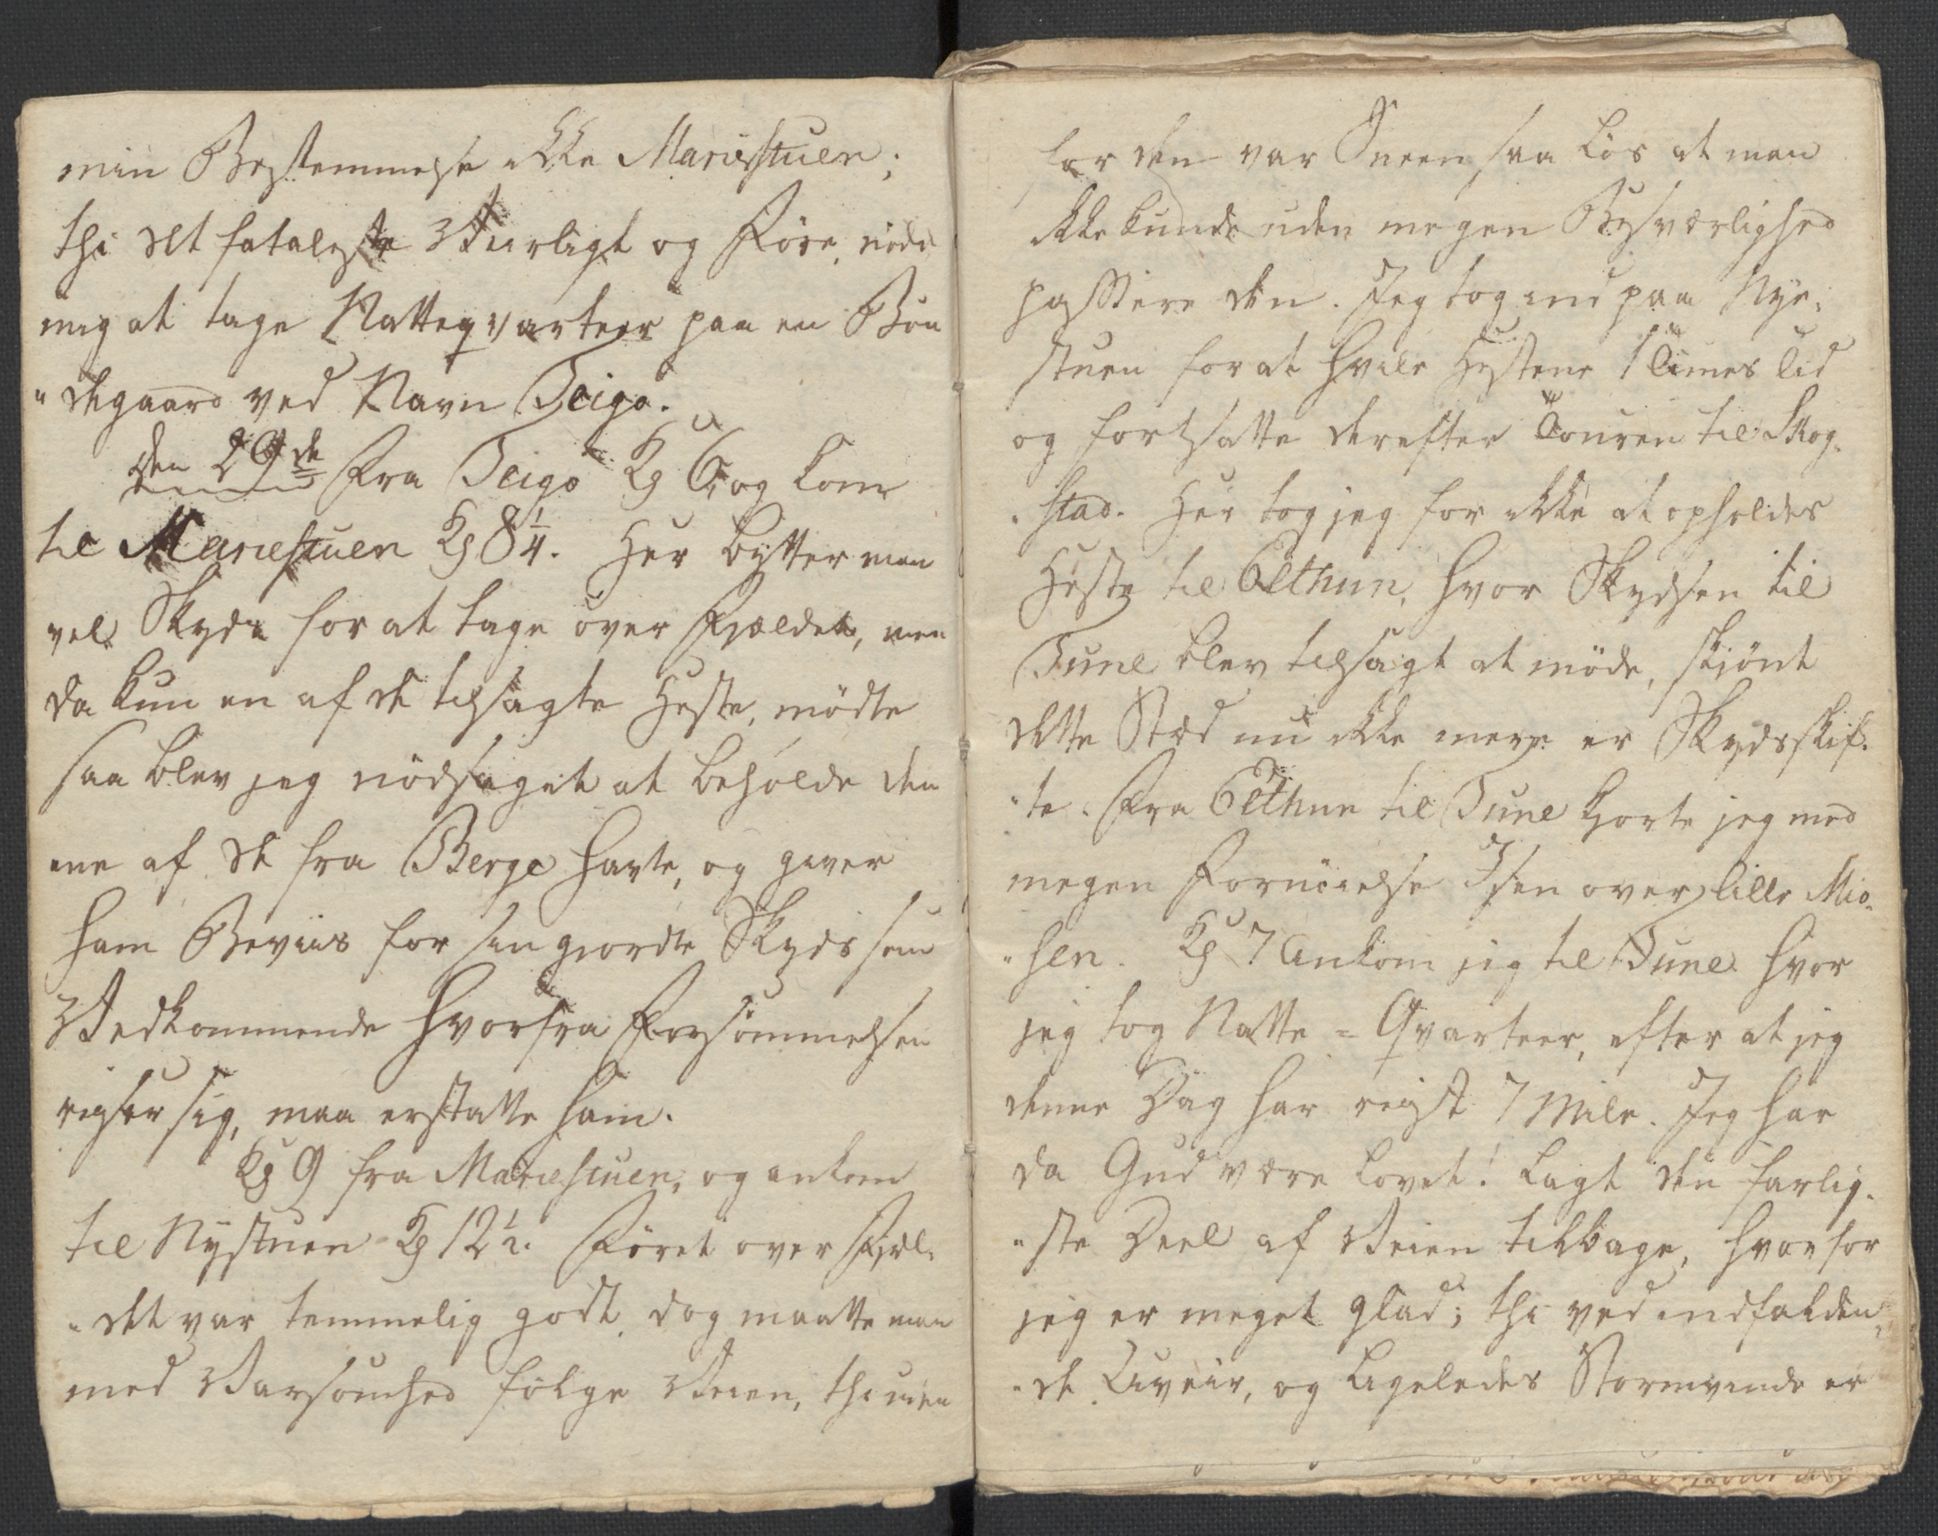 min Bestemmelse ikke Mariestuen;
thi det fataleste Veirligt og Føre, nöde
mig at tage Natteqvarteer paa en Bon
"degaard ved Navn Teigo.
den 29de Fra Teigo Kl 6, og kom
til Mariestuen Kl 8 1/4. Her bytter man
vel Skyds for at tage over Fjældet, men
da kun en af de tilsagte Heste, mödte
saa blev jeg nödsaget at beholde den
ene af de fra Berge havte, og giver
ham Beviis for sin giordte Skyds som
Vedkommende hvorfra Forsömmelsen
reiser sig, maa erstatte ham.
Kl 9 fra Mariestuen, og ankom
til Nystuen Kl 12 1/2. Föret over Fjæl-
"det var temmelig godt, dog maatte man
med Varsomhed fölge Veien, thi uden
for den var Sneen saa lös at man
ikke kunde uden megen Besværlighed
passere den. Jeg tog ind paa Nye-
stuen for at hvile Hestene 1 Times Tid
og fortsatte derefter Touren til Skog-
"stad. Her tog jeg for ikke at opholdes
Heste til Ölthun, hvor Skydsen til
Tune blev tilsagt at möde, skjönt
dette Stæd nu ikke mere er Skydsskif-
"te. Fra Ölthun til Tune kjorte jeg med
megen Fornöielse Isen over lille Miö-
"sen. Kl 7 ankom jeg til Tune hvor
jeg tog Natte-Qvarteer, efter at jeg
denne Dag har reist 7 Mile. Jeg har
da Gud være lovet! lagt den farlig-
"ste Deel af Veien tilbage, hvorfor
jeg er meget glad; thi ved indfalden-
"de Uveir, og ligeledes Stormvinde er